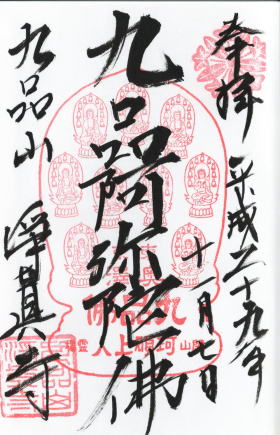 奉拝
平成二十九年
十一月七日
九品阿弥陀佛
九品山
浄真寺